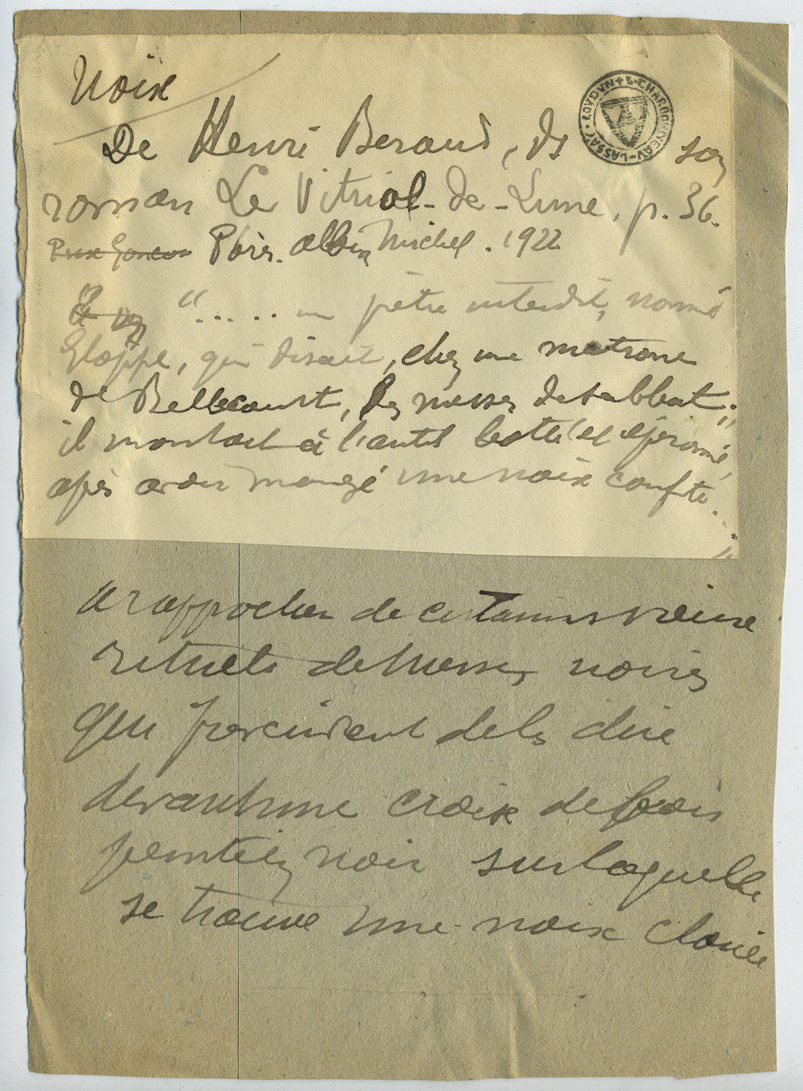 Noix
LOUDUN + L. CHARBONNEAU-LASSAY
De Henri Beraud, ds son
roman Le Vitriol-de-Lune, p. 36.
Prix Goncour Paris. Albin Michel. 1922
"..... un prêtre interdit, nommé
Glappe, qui disait, chez une matrone
de Bellecourt, des messes de sabbat;
il montait à l'autel botté et éperonné,
après avoir mangé une noix confite...
a rapprocher de certains vieux
rituels de messes noires
qui prescrivent de les dire
devant une croix de bois
peinte en noir sur laquelle
se trouve une noix clouée